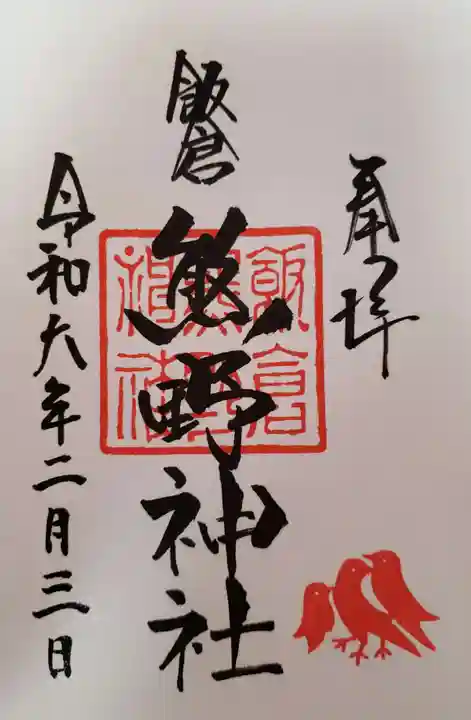 奉拝
飯倉
熊野神社
令和六年二月三日
飯倉
熊野
神社